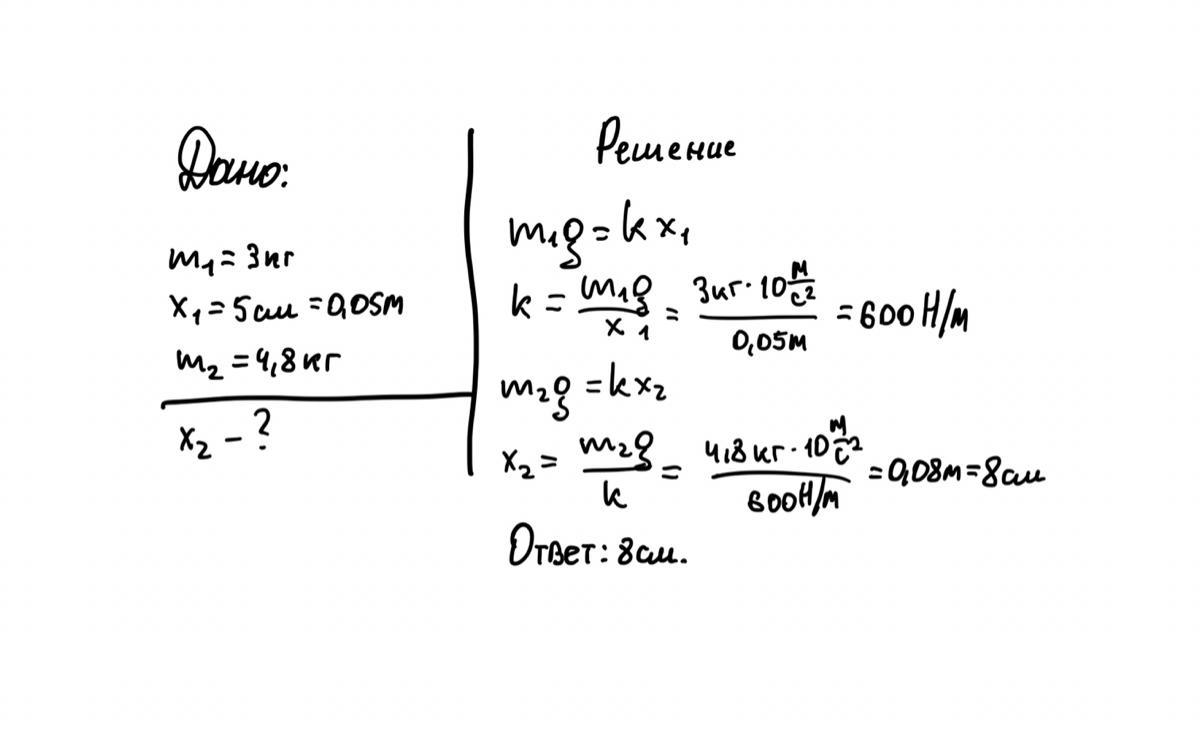 Дано:
m₁ = 3кг
x₁ = 5см = 0,05м
m₂ = 4,8кг
x₂ - ?
Решение
m₁g = kx₁
k = m₁g/x₁ = 3кг · 10 м/с²/0,05м = 600 Н/м
m₂g = kx₂
x₂ = m₂g/k = 4,8кг · 10 м/с²/600Н/м = 0,08м = 8см
Ответ: 8см.